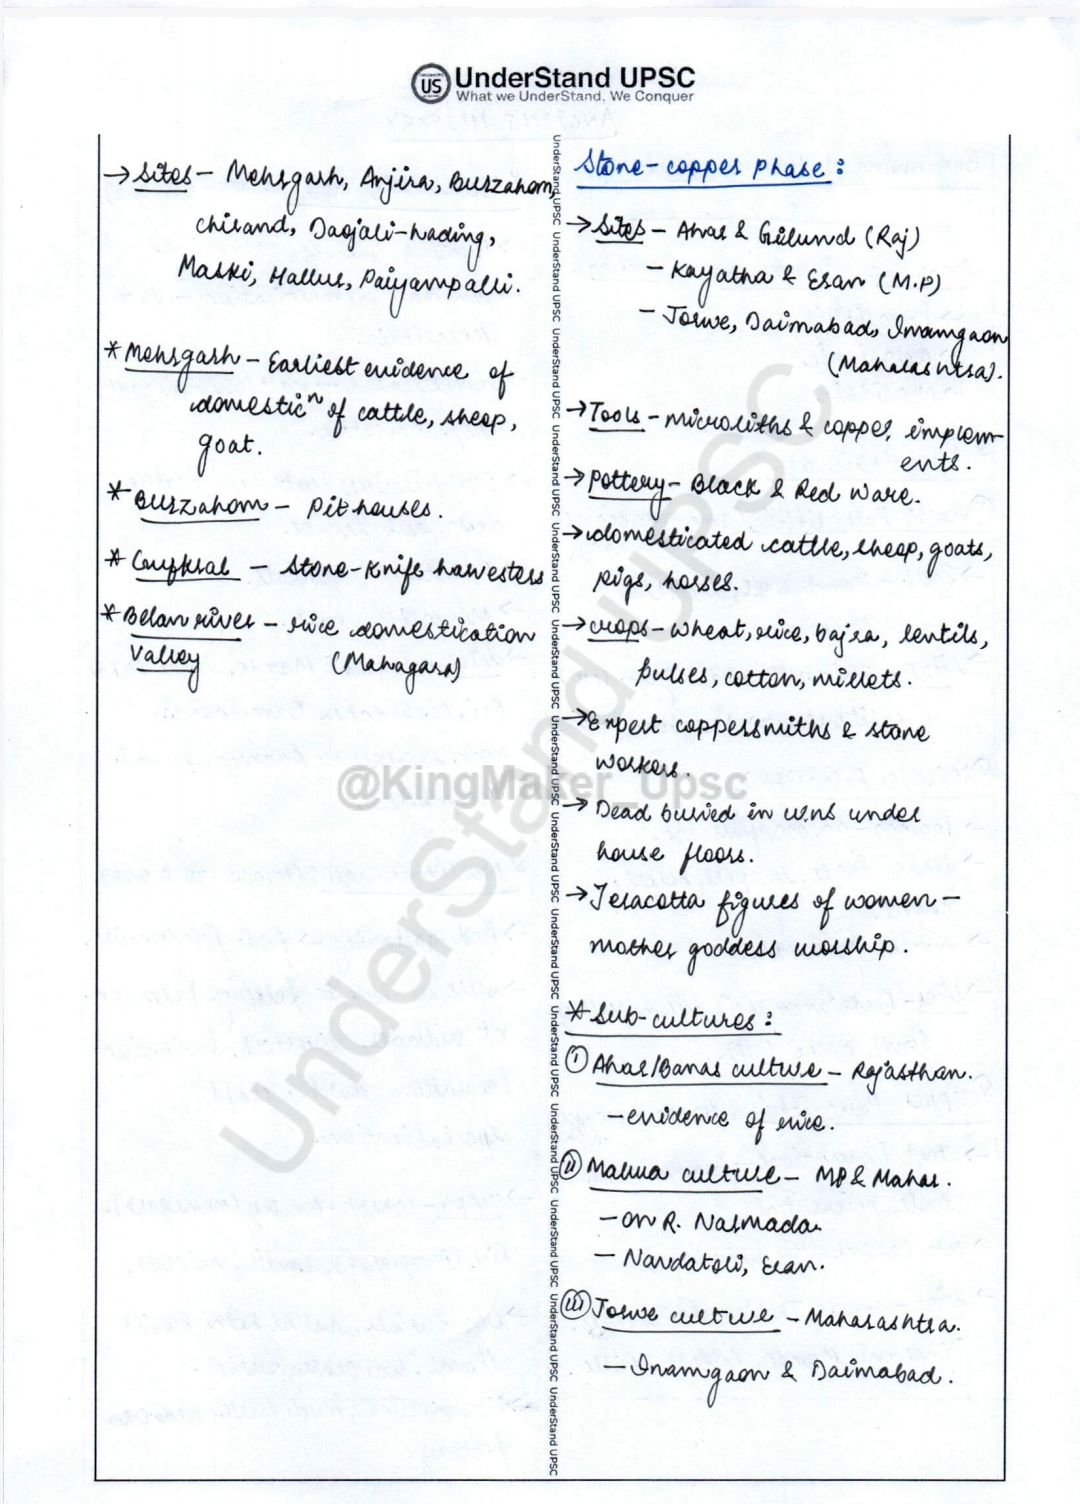 US UnderStand UPSC
What we UnderStand, We Conquer
→ Sites - Mehrgarh, Anjira, Burzahom,
Chirand, Daojali-hading,
Maski, Hallur, Paiyampalli.
* Mehrgarh - Earliest evidence of
domesticⁿ of cattle, sheep,
goat.
* Burzahom - Pit houses.
* Gufkral - Stone-Knife harvesters
* Belan river - rice domestication
Valley (Mahagara)
Stone-copper phase :
→ Sites - Ahar & Gilund (Raj)
- Kayatha & Eran (M.P)
- Jorwe, Daimabad, Inamgaon
(Maharashtra).
→ Tools - microliths & copper implem-
ents.
→ Pottery - Black & Red Ware.
→ domesticated cattle, sheep, goats,
pigs, horses.
→ crops - wheat, rice, bajra, lentils,
pulses, cotton, millets.
→ Expert coppersmiths & stone
workers.
→ Dead buried in urns under
house floors.
→ Teracotta figures of women -
mother goddess worship.
* Sub-cultures :
(i) Ahar/Banas culture - Rajasthan.
- evidence of rice.
(ii) Malwa culture - MP & Mahar.
- on R. Narmada
- Navdatoli, Eran.
(iii) Jorwe culture - Maharashtra.
- Inamgaon & Daimabad.
@KingMaker_Upsc
UnderStand UPSC